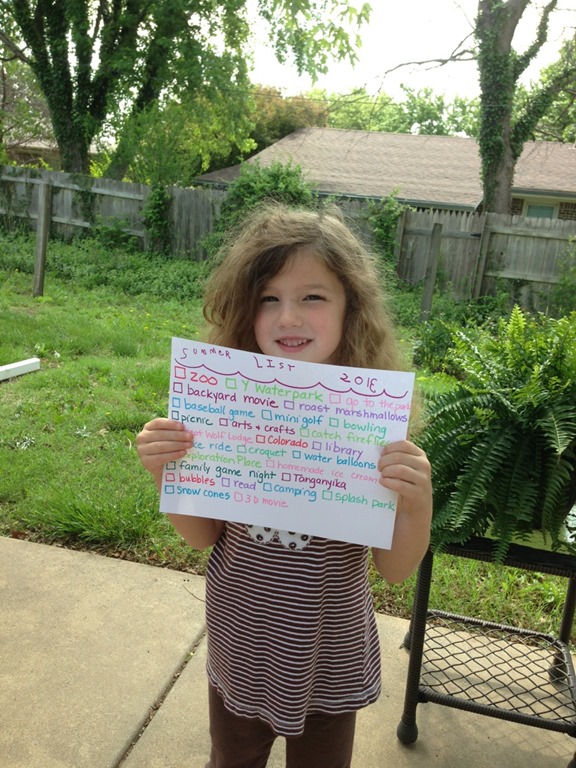 SUMMER LIST 2016
ZOO Y Waterpark go to the park
backyard movie roast marshmallows
baseball game mini golf bowling
picnic arts & crafts catch fireflies
Wolf Lodge Colorado library
ride croquet water balloons
Exploration Place homemade ice cream
family game night Tanganyika
bubbles read camping splash park
snow cones 3D movie